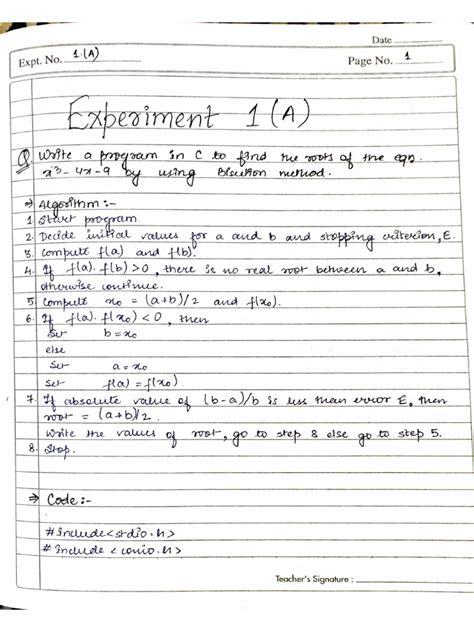 Date
Expt. No. 1.(A)
Page No. 1
Experiment 1 (A)
Q. Write a program in C to find the roots of the eqn.
x³-4x-9 by using Bisection method.
⇒ Algorithm :-
1. Start program.
2. Decide initial values for a and b and stopping criterion, E.
3. Compute f(a) and f(b).
4. If f(a). f(b) >0, there is no real root between a and b,
otherwise continue.
5. Compute x₀ = (a+b)/2 and f(x₀).
6. If f(a). f(x₀) < 0, then
Set b = x₀
else
Set a = x₀
Set f(a) = f(x₀)
7. If absolute value of (b-a)/b is less than error E, then
root = (a+b)/2.
Write the values of root, go to step 8 else go to step 5.
8. Stop.
⇒ Code :-
#include<stdio.h>
#include <conio.h>
Teacher's Signature :